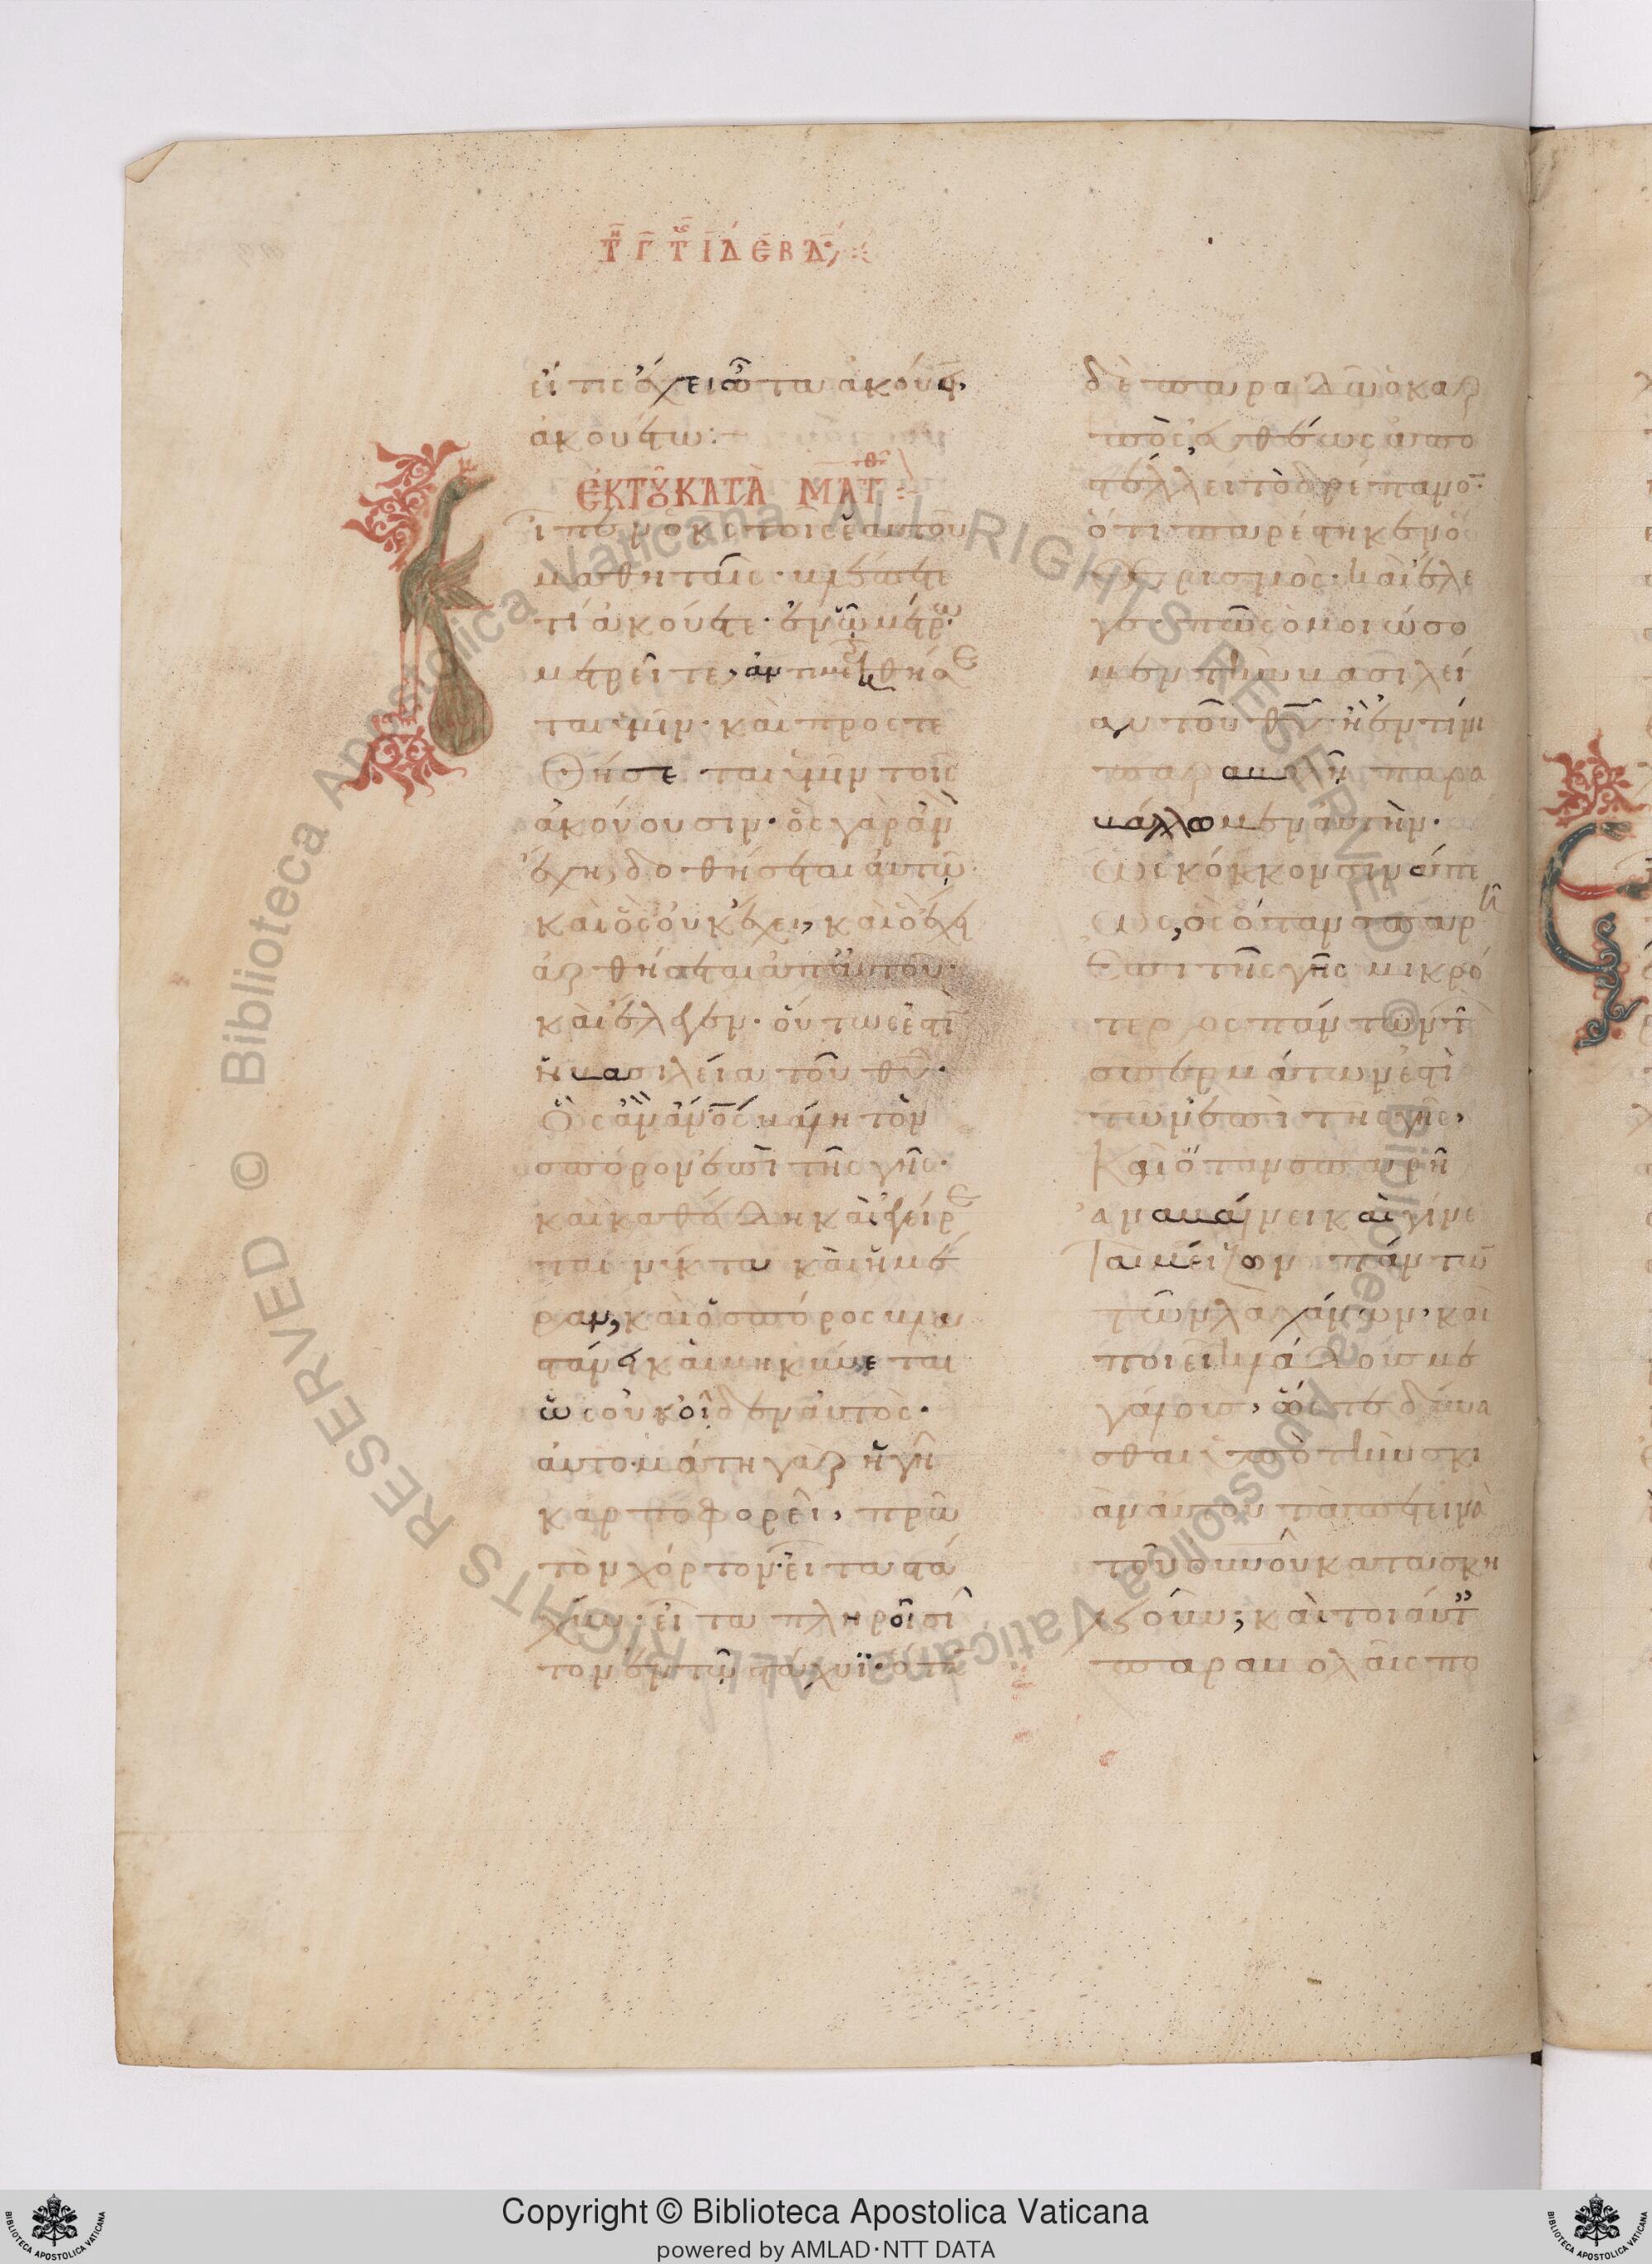 Τῆ Γ Τῆς ΙΔ ΕΒΔ
εἴ τις ἔχει ὦτα ἀκούειν,
ἀκουέτω:
ἘΚ ΤΟΥ ΚΑΤᾺ ΜΑΤΘ
ἶπεν ὁ κς τοῖς ἑαυτοῦ
μαθηταῖς· βλέπετε
τί ἀκούετε· ἐν ᾧ μέτρω
μετρεῖτε, ἀντιμετρηθήσε
ται ὑμῖν· καὶ προστε
θήσεται ὑμῖν τοῖς
ἀκούουσιν· ὃς γὰρ ἂν
ἔχῃ, δοθήσεται αὐτῷ·
καὶ ὃς οὐκ ἔχει, καὶ ὃ ἔχει
ἀρθήσεται ἀπ αὐτοῦ·
καὶ ἔλεγεν· οὕτως ἐστὶν
ἡ βασιλεία τοῦ θυ·
Ὡς ἂν ἄνος βάλη τὸν
σπόρον ἐπὶ τῆς γῆς·
καὶ καθεύδη καὶ ἐγείρε
ται νύκτα καὶ ἡμέ
ραν, καὶ ὁ σπόρος βλα
στάνει καὶ μηκύνεται
ὡς οὐκ οἶδεν αὐτὸς·
αὐτομάτη γὰρ ἡ γῆ
καρποφορεῖ, πρῶ
τον χόρτον· εἶτα στά
χυν· εἶτα πλήρη σῖ
τον ἐν τῷ στάχυϊ· ὅταν
δὲ παραδῶ ὁ καρ
πὸς, εὐθέως ἀπο
στέλλει τὸ δρέπανον·
ὅτι παρέστηκεν ὁ
θερισμὸς· καὶ ἔλε
γε· πῶς ὁμοιώσο
μεν τὴν βασιλεί
αν τοῦ θυ· ἢ ἐν τίνι
παραβολῇ παρα
βάλλομεν αὐτήν·
Ὡς κόκκον σινάπε
ως, ὃς ὅταν σπαρῆ
ἐπὶ τῆς γῆς μικρό
τερος πάντων τῶν
σπερμάτων ἐστὶ
τῶν ἐπὶ τῆς γῆς,
Καὶ ὅταν σπαρῆ
ἀναβαίνει καὶ γίνε
ται μείζων πάντων
τῶν λαχάνων, καὶ
ποιεῖ κλάδους με
γάλους, ὥστε δύνα
σθαι ὑπὸ τὴν σκι
ὰν αὐτοῦ τὰ πετεινὰ
τοῦ οὐνοῦ κατασκη
νοῦν; καὶ τοιαύτ
παραβολαῖς πο
Copyright © Biblioteca Apostolica Vaticana
powered by AMLAD·NTT DATA